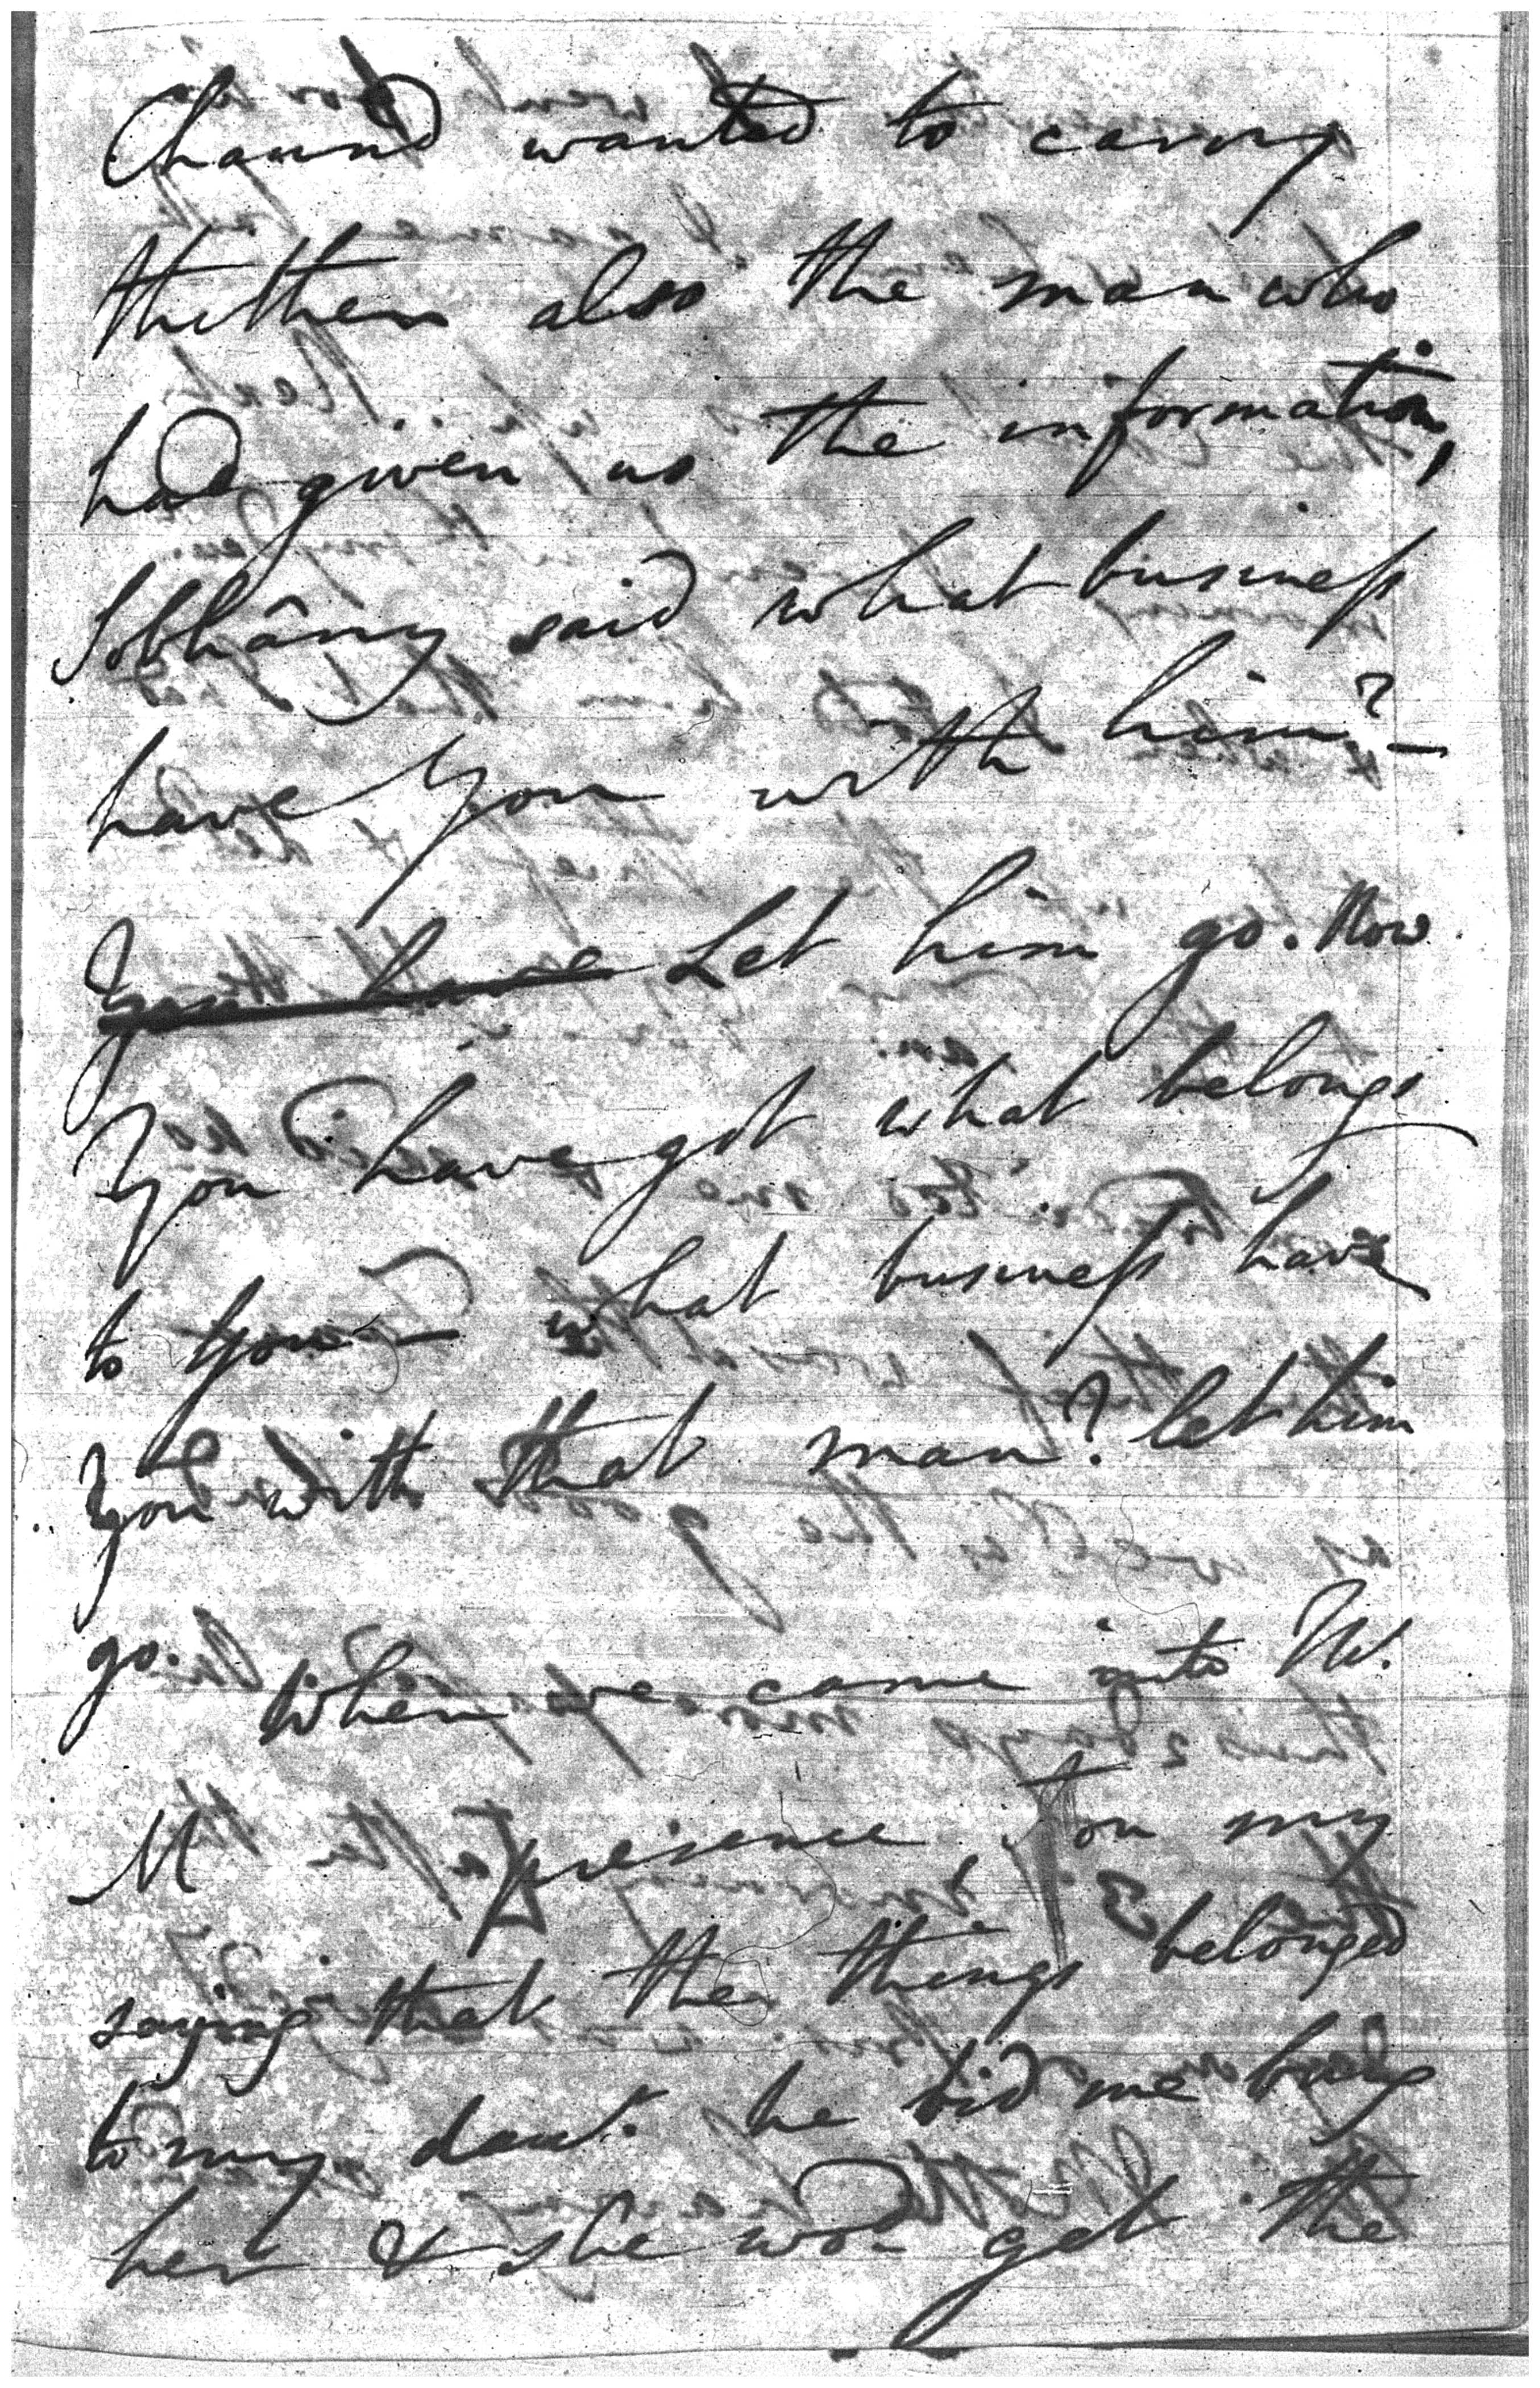 Chaund wanted to carry
thither also the man who
had given us the information,
Sobhâny said what business
have you with him? —
You have Let him go. Now
You have got what belongs
to you — what business have
you with that man? let him
go. When we came into W.
M presence, on my
saying that the things belonged
to my daur. he bid me bring
her & she wod. get the